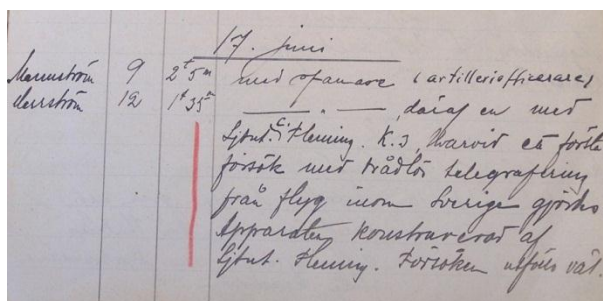 17. juni
Mannström 9 2t 5m med spanare (artilleriofficerare)
Herrström 12 1t 35m —— " —— , däraf en med
Ljtnt. C. Fleming. K. 3, Hvarvid ett första
försök med trådlös telegrafering
från flyg inom Sverige gjordes
Apparaten konstruerad af
Ljtnt. Fleming. Försöken utföllo väl.